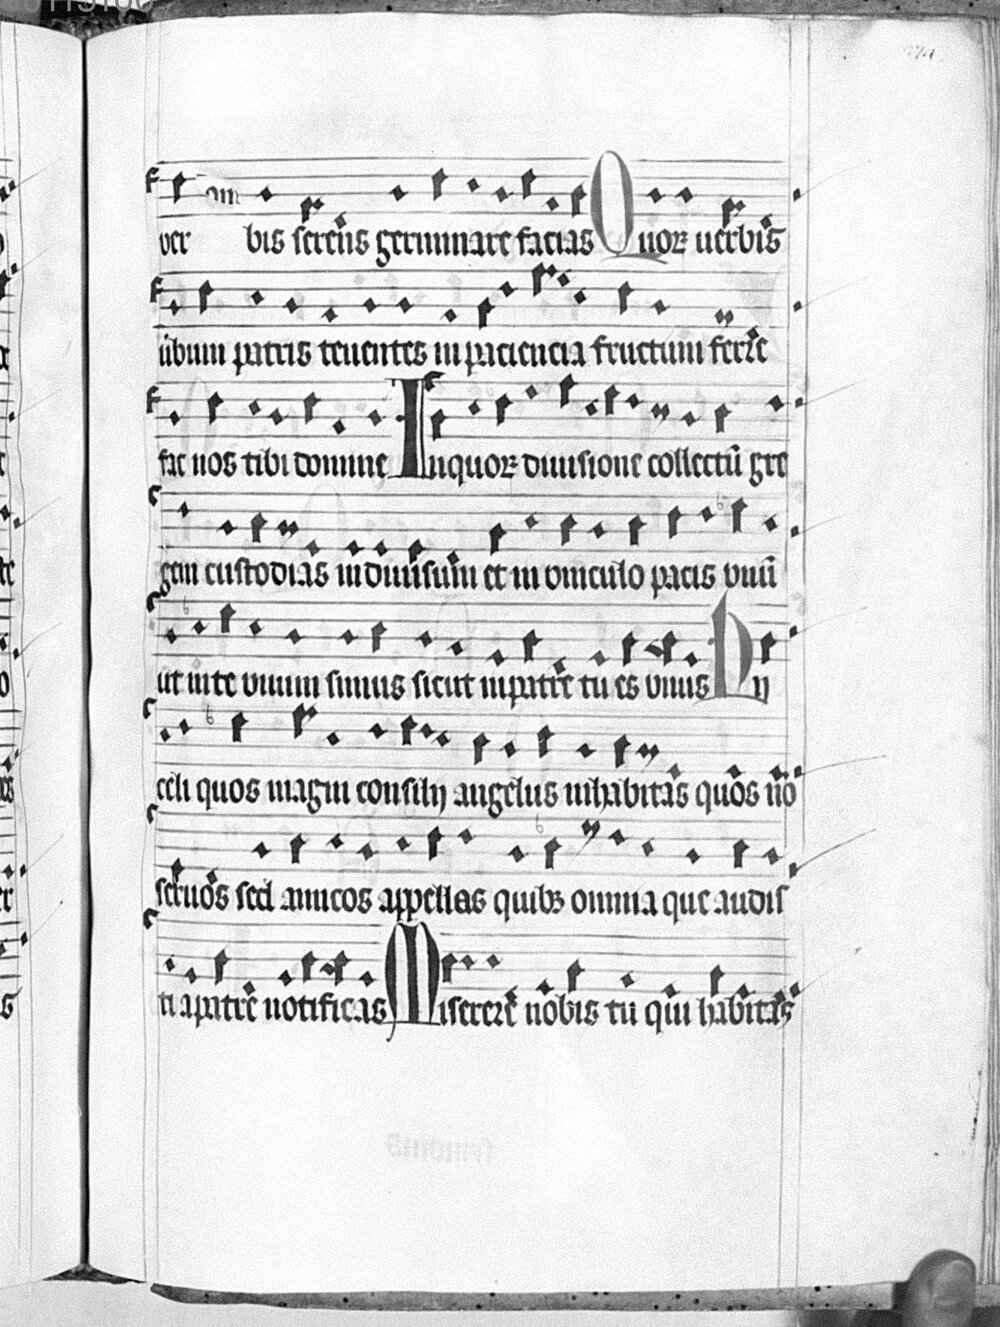 ver bis serens germinare facias Quor uerbis
ubum patris tenentes in paciencia fructum ferre
fac nos tibi domine In quor diuisione collectū gre
gem custodias indiuisum et in uinculo pacis unū
ut in te unum simus sicut in patre tu es unus Hij
celi quos magni consilij angelus inhabitas quos nō
seruos sed amicos appellas quibȝ omnia que audis
ti a patre notificas Miserere nobis tu qui habitas